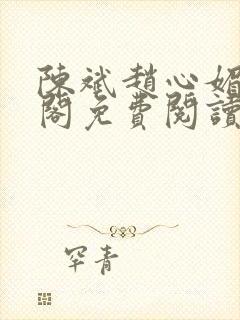 陳斌趙心媚
閣免費閱讀
罕青